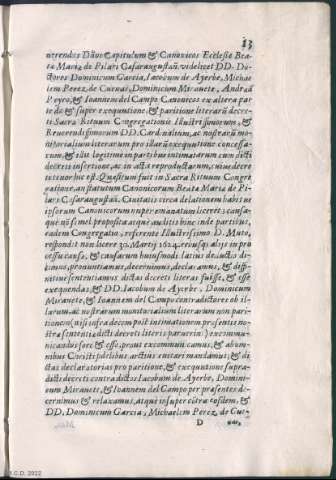 13
uerendos Dños Capitulum & Canonicos Ecclesiæ Bea-
tæ Mariæ de Pilari Cæsaraugustan̄. videlicet DD. Do-
ctores Dominicum Garcia, Iacobum de Ayerbe, Michae
lem Perez, de Cuenas, Dominicum Miranete, Andrea
Peyro, & Ioannem del Campo Canonicos ex altera par
te de & super exequutione & paritione literarū decre-
ti Sacra Rituum Congregationis Illustrissimorum, &
Reuerendissimorum D.D. Cardinalium, ac nostrarū mo-
nitorialium literarum pro illarū exequutione concessa-
rum, & illis legitime in partibus intimatarum cum dicti
decreti insertione, ac in acta reproductarum, cuius decre
ti tenor hic est. Quæsitum fuit in Sacra Rituum Congre
gatione, an statutum Canonicorum Beatæ Mariæ de Pi-
lari Cæsaraugustan̄. Ciuitatis circa delationem habitus
ipsorum Canonicorum nuper emanatum liceret: causa-
que nō semel proposita, atque auditis hinc inde partibus,
eadem Congregatio, referente Illustrissimo D. Muto,
respondit non licere 30. Martij 1624. rebusq; alijs in pro
cessu causæ, & causarum huiusmodi latius deductis di-
cimus, pronuntiamus, decernimus, declaramus, & diffi-
nitiue sententiamus dictas decreti literas fuisse, & esse
exequendas, & DD. Iacobum de Ayerbe, Dominicum
Miranete, & Ioannem del Campo contradictores ob il-
larum, ac nostrarum monitorialium literarum non pari-
tionem (nisi infra decem post intimationem præsentis no-
stræ sententiæ dicti decreti literis paruerint) excommu-
nicandos fore & esse, prout excommunicamus, & ab om-
nibus Christi fidelibus arctius euitari mandamus, & di-
ctas declaratorias pro paritione, & exequutione supra-
dicti decreti contra dictos Iacobum de Ayerbe, Domini-
cum Miranete, & Ioannem del Campo per præsentes de-
cernimus & relaxamus, atque insuper citra eosdem, &
DD. Dominicum Garcia, Michaelem Perez, de Cue-
D
nas,
M.E.C.D. 2012